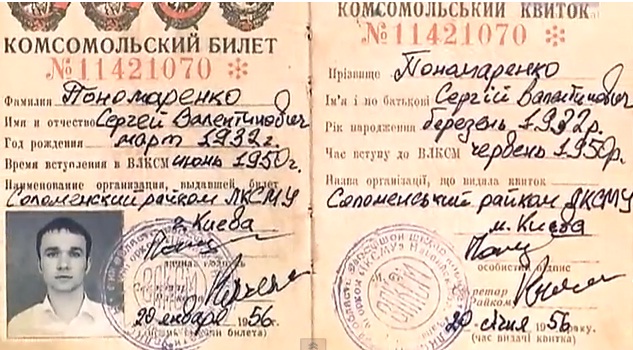 КОМСОМОЛЬСКИЙ БИЛЕТ
№ 11421070 *
Фамилия Пономаренко
Имя и отчество Сергей Валентинович
Год рождения март 1932г.
Время вступления в ВЛКСМ июнь 1950г.
Наименование организации, выдавшей билет
Соломенский райком ЛКСМУ
г. Киева
20 января 1956г.
КОМСОМОЛЬСЬКИЙ КВИТОК
№ 11421070 *
Прізвище Пономаренко
Ім'я і по батькові Сергій Валентинович
Рік народження березень 1932р.
Час вступу до ВЛКСМ червень 1950р.
Назва організації, що видала квиток
Соломенський райком ЛКСМУ
м. Києва
особистий підпис
20 січня 1956 року.
(час видачі квитка)